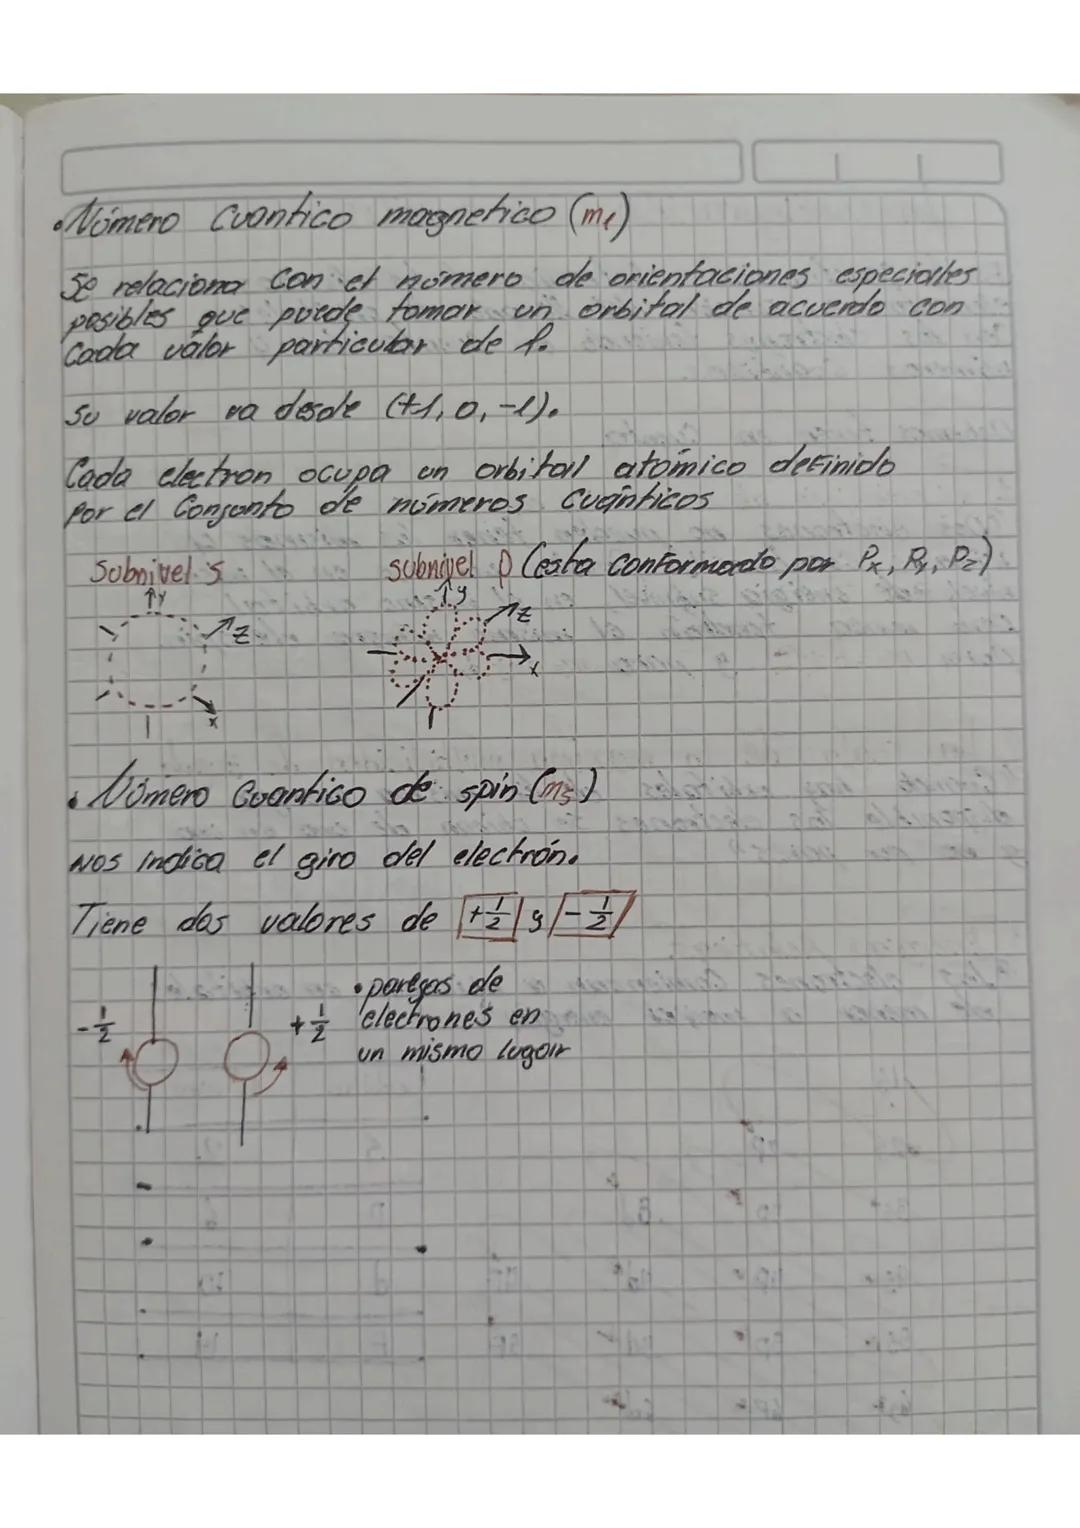 • Número Cuantico magnetico (ml)
Se relaciona con el número de orientaciones especiales
posibles que puede tomar un orbital de acuerdo con
Cada valor particular de l.
Su valor va desde (+l, 0, -l).
Cada electron ocupa un orbital atómico definido
Por el Conjunto de números cuánticos
Subnivel s
subnivel p (esta conformado por Px, Py, Pz)
y
z
x
y
z
x
• Número Cuantico de spin (ms)
Nos indica el giro del electrón.
Tiene dos valores de +1/2 y -1/2
-1/2
+1/2
• parejas de
electrones en
un mismo lugar